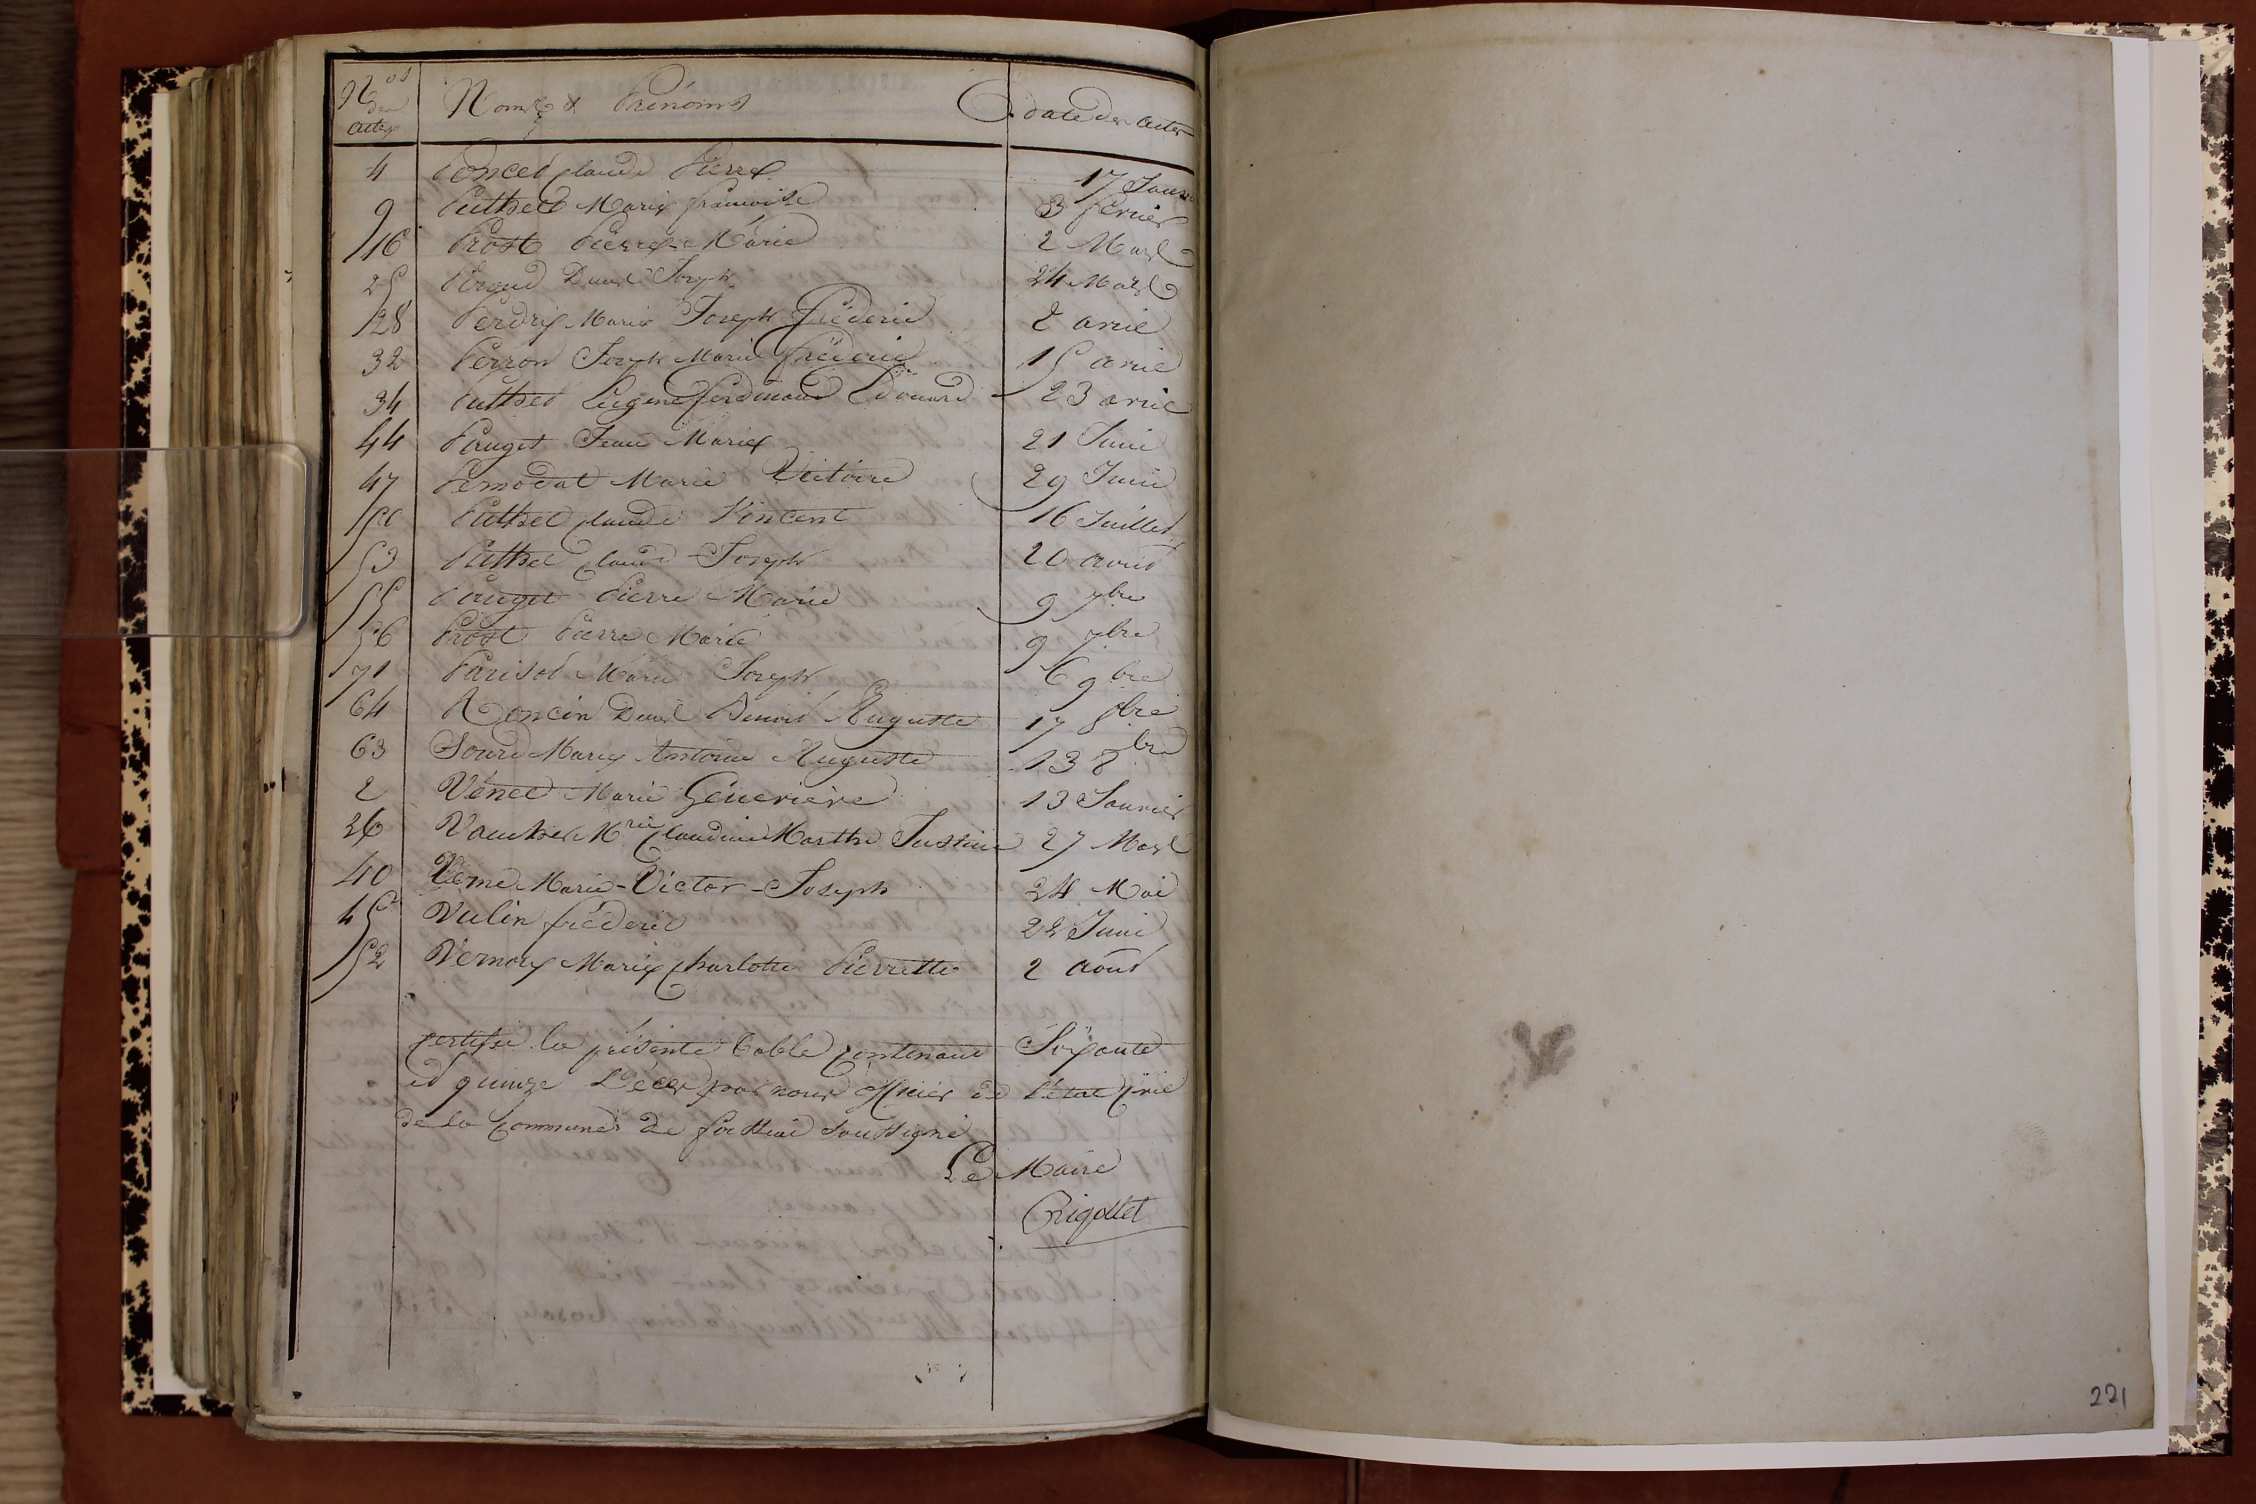 Nos des actes Noms & Prénoms date des actes
4 Poncet Claude Pierre 17 Janvier
9 Puthod Marie françoise 3 fevrier
16 Prost Pierre Marie 2 Mars
25 David Joseph 24 Mars
28 Perdrix Marie Joseph fréderic 2 avril
32 Perron Joseph Marie fréderic 15 avril
34 Puthod Eugene ferdinand Edouard 23 avril
44 Pauget Jean Marie 21 Juin
47 Pernodat Marie Victoire 29 Juin
50 Puthod Claude Vincent 16 Juillet
53 Puthod Claude Joseph 20 aout
55 Pauget Pierre Marie 9 7bre
56 Prost Pierre Marie 9 7bre
71 Parisot Marie Joseph 6 9bre
64 Roncin David Benoit Auguste 17 8bre
63 Sourd Marie Antoine Auguste 13 8bre
2 Venet Marie Génevieve 13 Janvier
26 Vaucher Mrie Claudine Marthe Justine 27 Mars
40 Marie-Victor-Joseph 24 Mai
45 Vulin fréderic 22 Juin
52 Vernoux Marie Charlotte Pierrette 2 aout
certifié la présente table contenant Soixante
et quinze Décès par nous officier de l'état Civil
de la Commune de soussigné
Le Maire
Grigollet
221